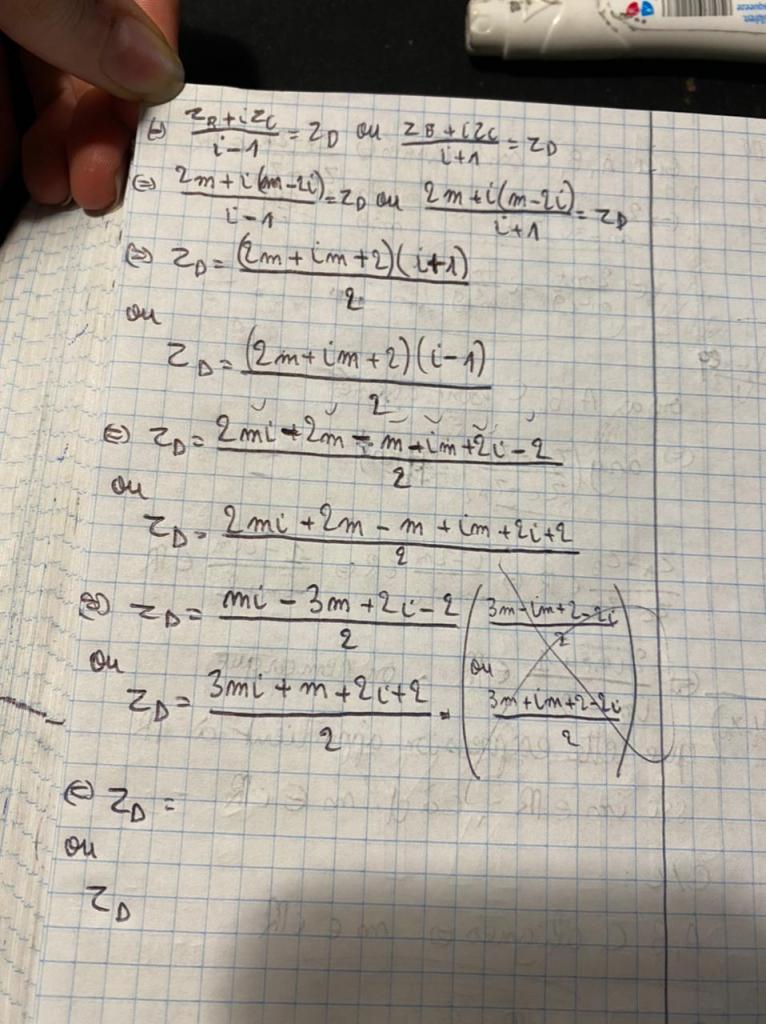 ⇔ (z_B + i z_C)/(i - 1) = z_D ou (z_B + i z_C)/(i + 1) = z_D
⇔ (2m + i(m - 2i))/(i - 1) = z_D ou (2m + i(m - 2i))/(i + 1) = z_D
⇔ z_D = (2m + im + 2)(i + 1)/2
ou
z_D = (2m + im + 2)(i - 1)/2
⇔ z_D = (2mi - 2m - m - im + 2i - 2)/2
ou
z_D = (2mi + 2m - m + im + 2i + 2)/2
⇔ z_D = (mi - 3m + 2i - 2)/2 ( (3m - im + 2 - 2i)/2
ou ou
z_D = (3mi + m + 2i + 2)/2 = (3m + im + 2 - 2i)/2 )
⇔ z_D =
ou
z_D